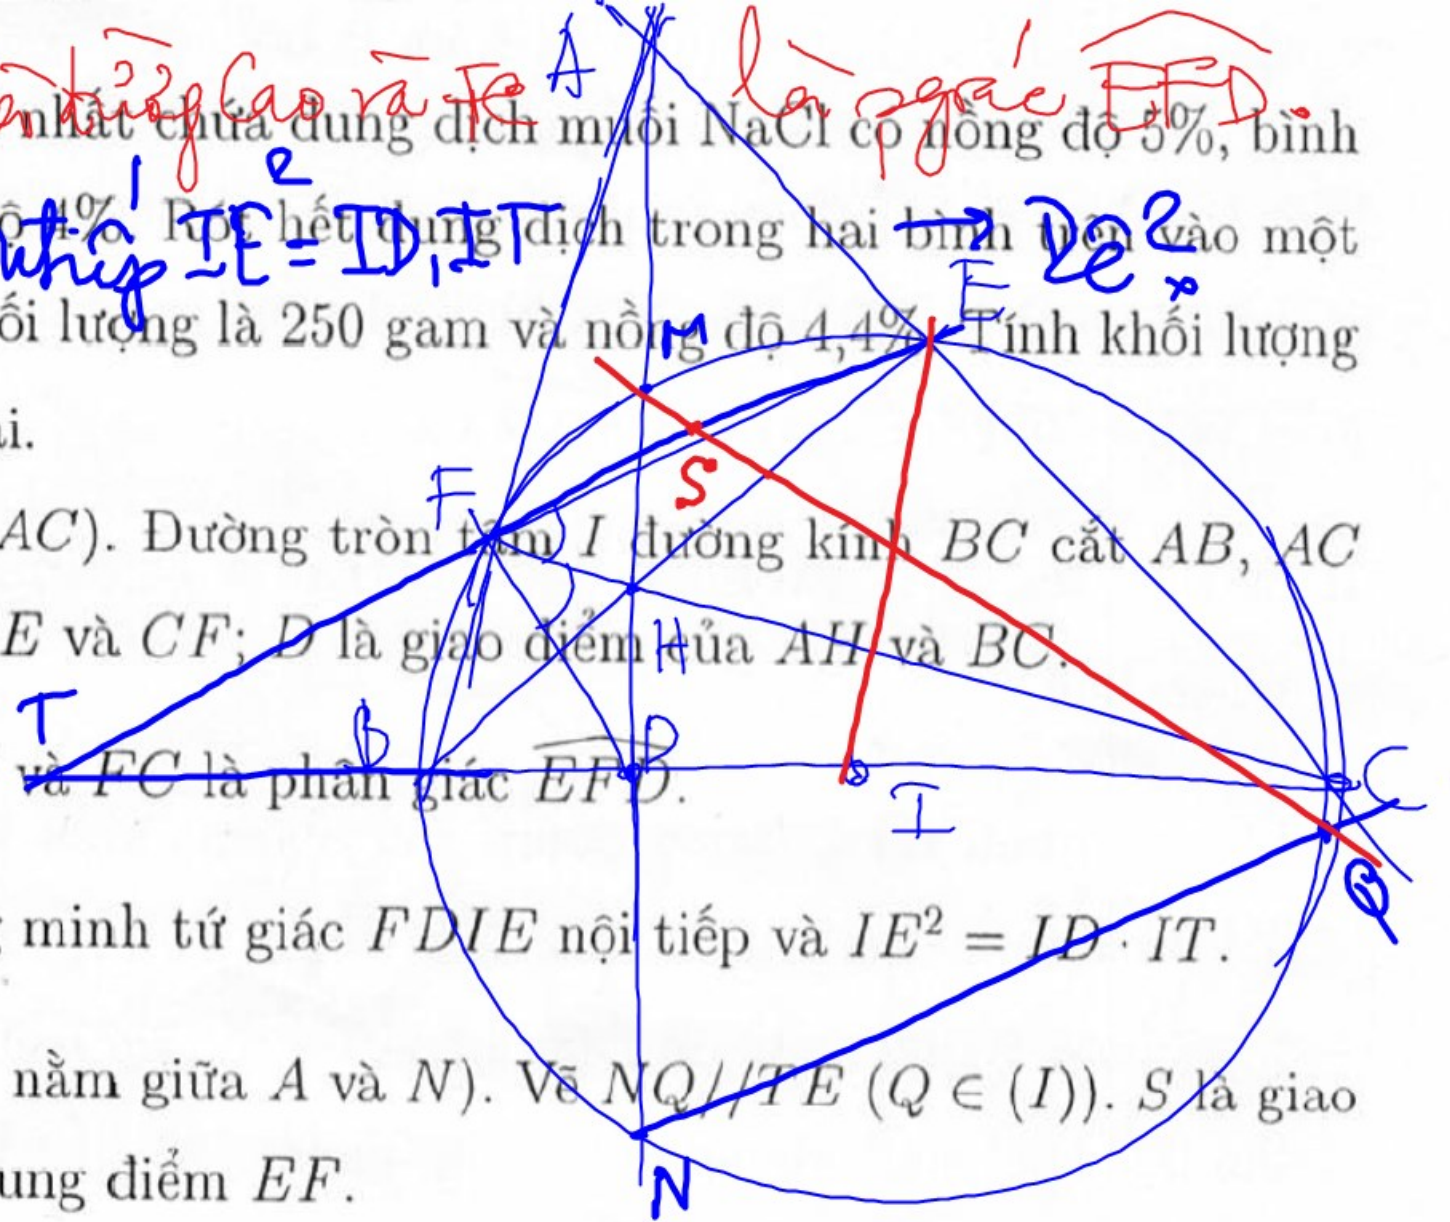 là pgiác EFD.
nhất chứa dung dịch muối NaCl có nồng độ 5%, bình
độ 4%. Rót hết dung dịch trong hai bình trên vào một
IE² = ID.IT → De?
ối lượng là 250 gam và nồng độ 4,4%. Tính khối lượng
ai.
AC). Đường tròn tâm I đường kính BC cắt AB, AC
E và CF; D là giao điểm của AH và BC.
và FC là phân giác EFD.
minh tứ giác FDIE nội tiếp và IE² = ID · IT.
nằm giữa A và N). Vẽ NQ//TE (Q ∈ (I)). S là giao
ung điểm EF.
A
E
M
S
F
H
T
B
D
I
C
Q
N